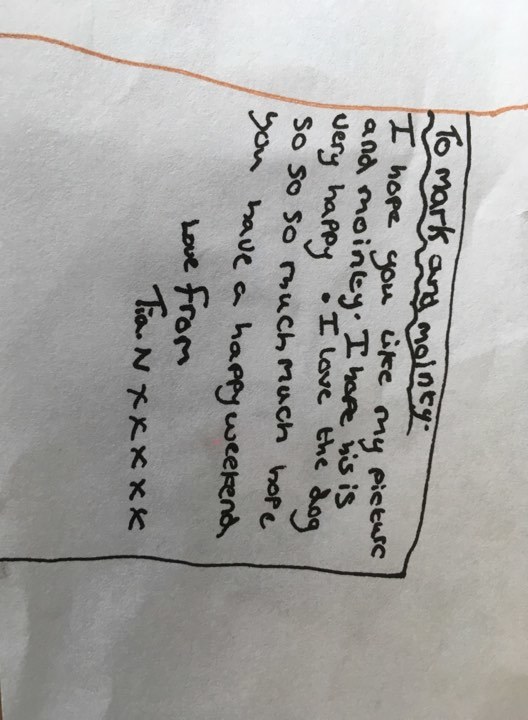 To mark and mointy.
I hope you like my picture
and mointy. I hope his is
very happy . I love the dog
so so so much much hope
you have a happy weekend,
Love from
Tia.N x x x x x